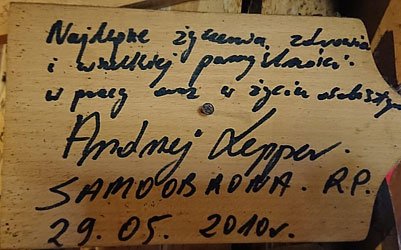 Najlepsze życzenia, zdrowia
i wielkiej pomyślności
w pracy oraz w życiu osobistym
Andrzej Lepper.
SAMOOBRONA. R.P.
29.05.2010r.